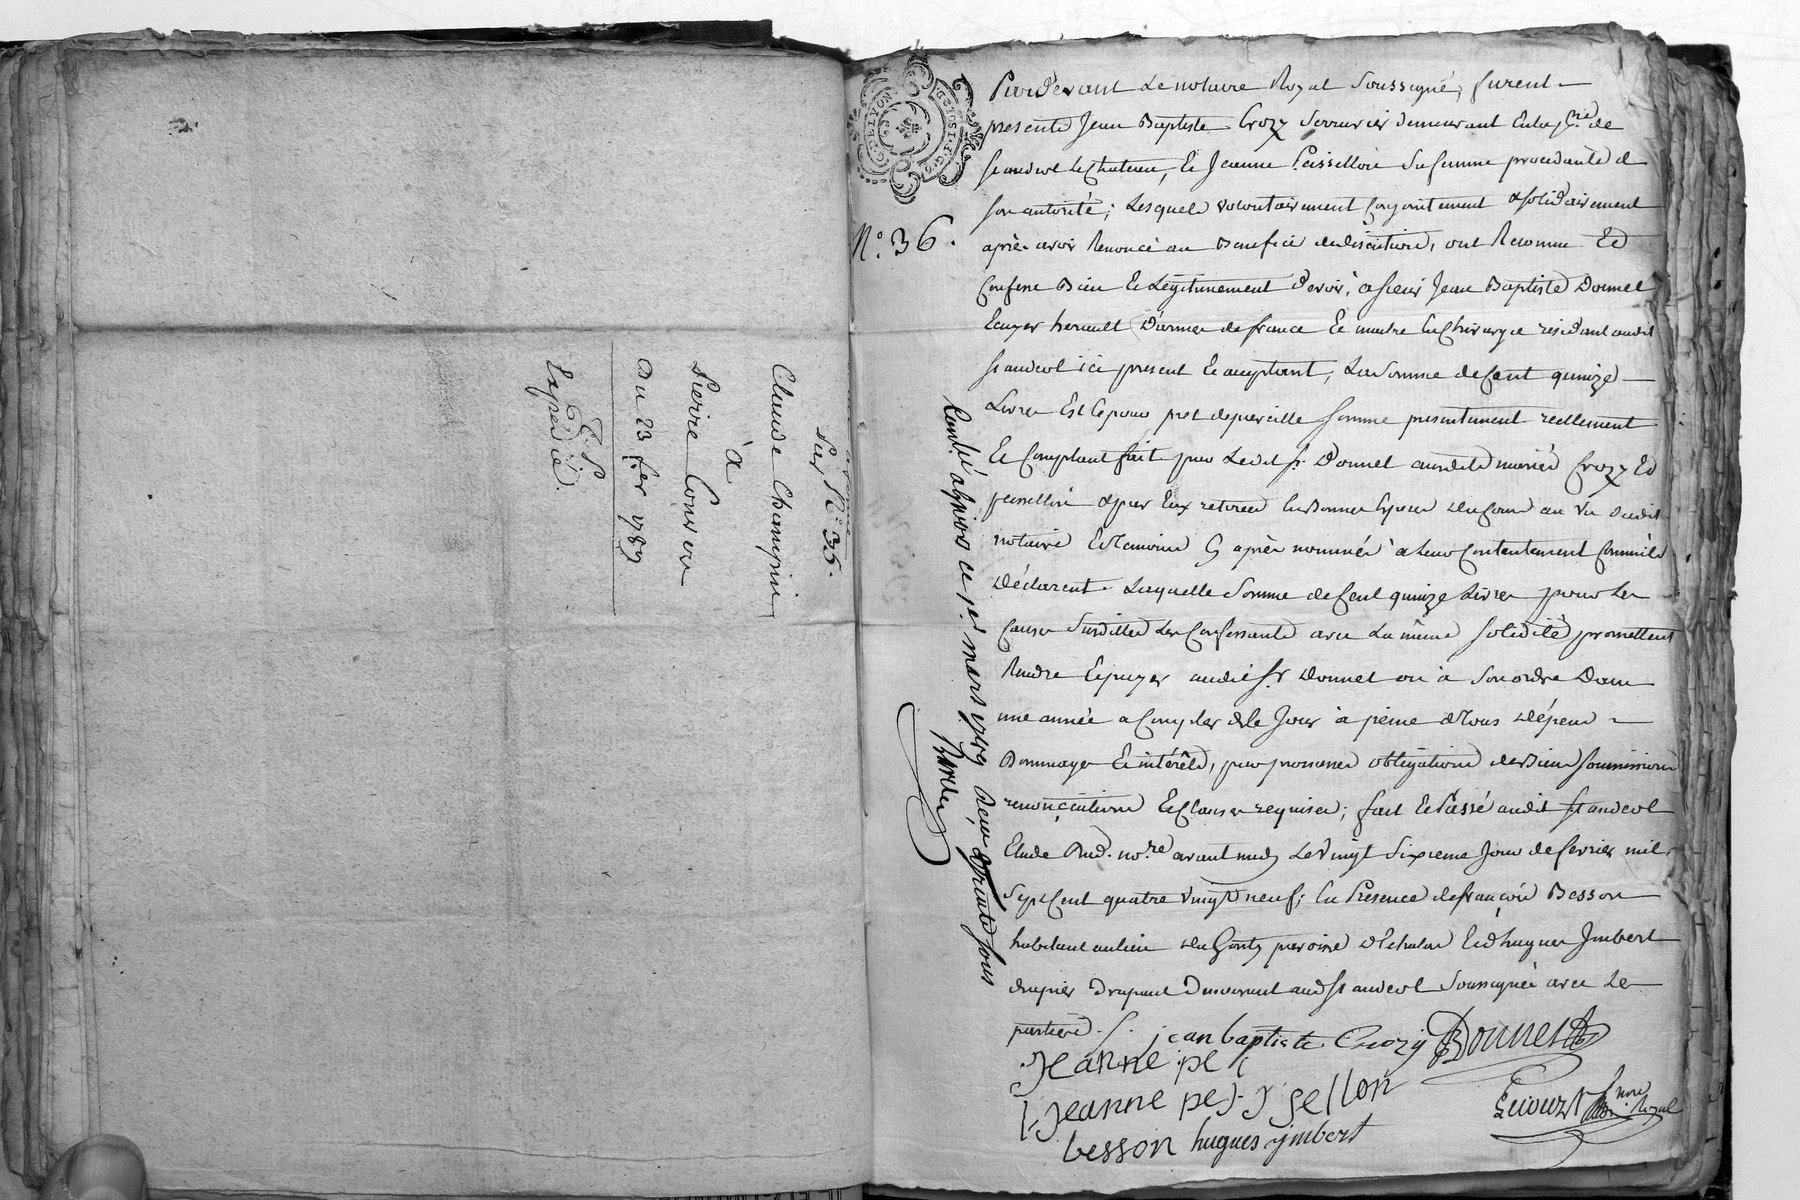 Sur N° 35.
Claude Champin
à
Pierre
Du 23 fer 1789
Expedié.
G. DE LYON
2D. 10S. L. F. G.
N° 36.
Pardevant Le notaire Royal Soussigné, furent
presents Jean Baptiste Crozy Serrurier demeurant En la p.re de
St andeol Le Chateau, Et Jeanne Peissellon Sa femme procedante de
son autorité; Lesquels volontairement Conjointement & solidairement
après avoir Renoncé au Benefice de discution, ont Reconnu Et
Confessé Bien Et Légitimement devoir, a sieur Jean Baptiste Donnet
Ecuyer herault D'armes de france Et maitre En Chirurgie résidant audit
St andeol ici present Et acceptant, La Somme de Cent quinze
Livres Est Ce pour pret de pareille Somme presentement reellement
Et Comptant fait par Led. Sr. Donnet auxdits mariés Crozy Et
peissellon & par Eux retirée En Bonnes Especes de Cours au vu dudit
notaire Et temoins Cy après nommés à Leur Contentement Comme ils
Déclarent. Laquelle Somme de Cent quinze Livres pour Les
Causes Susdittes Les Confessants avec La même Solidité promettent
Rendre Et payer audit Sr Donnet ou à Son ordre Dans
une année a Compter de Ce Jour à peine de tous dépens
Dommages Et intérêts, par promesses obligations de Biens Soumissions
renonciations Et Clauses requises; fait Et Passé audit St andeol
Etude Dud. no.re avant midy Le Vingt Sixieme Jour de fevrier mil
Sept Cent quatre Vingt neuf; En Presence de françois Besson
habitant au lieu paroisse D'Echalas Et d'hugues Imbert
drapier Drapant Demeurant aud St andeol Soussignés avec Les
parties.
jean baptiste Crozy Donnet
Jeanne pe
Jeanne pesSellon
besson hugues ymbert
no.re Royal
Conlé à ce 1er mars 1789 Reçu trente sous